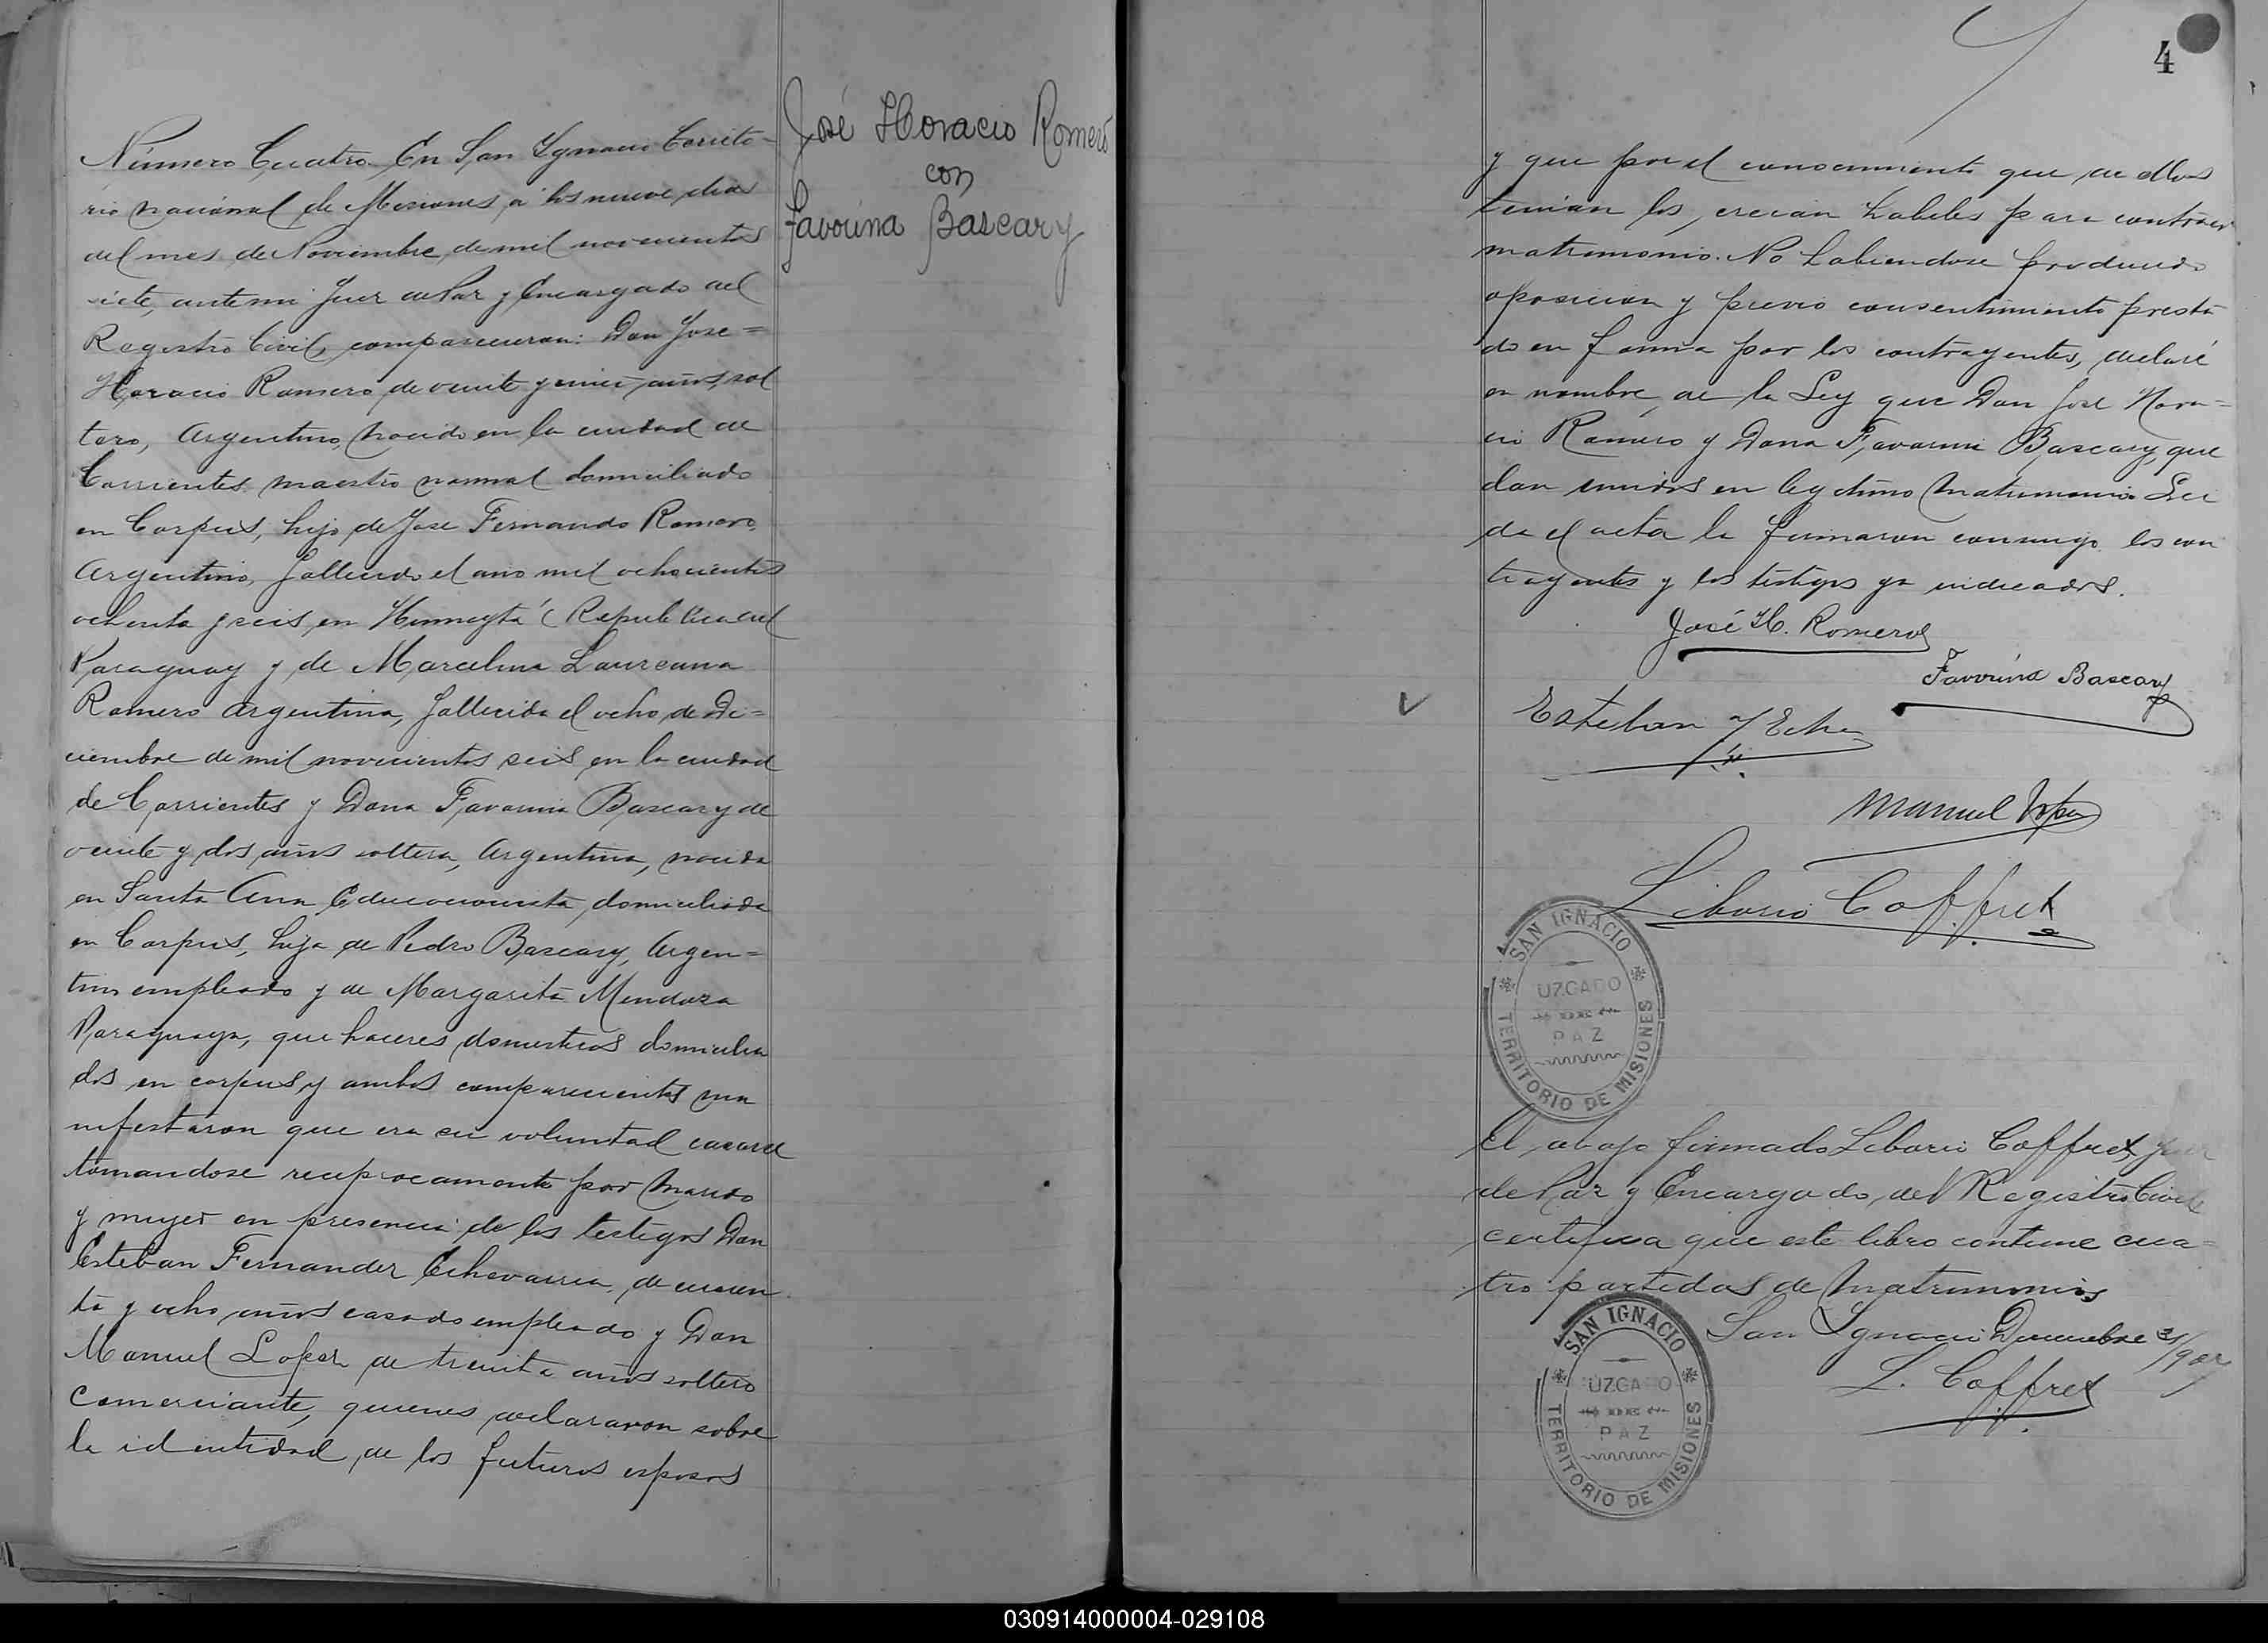 Número Cuatro. En San Ygnacio Territo-
rio nacional de Misiones, á los nueve dias
del mes de Noviembre de mil novecientos
siete, ante mi Juez de Paz y Encargado del
Registro Civil, comparecieron: Don Jose=
Horacio Romero de veinte y años, sol
tero, Argentino, nacido en la ciudad de
Corrientes maestro normal domiciliado
en Corpus, hijo de Jose Fernando Romero,
Argentino, fallecido el año mil ochocientos
ochenta y seis, en Humaytá (Republica del
Paraguay y de Marcelina Laureana
Romero Argentina, fallecida el ocho de Di=
ciembre de mil novecientos seis en la ciudad
de Corrientes y Dona Favorina Bascary de
veinte y dos años soltera, Argentina, nacida
en Santa Ana domiciliada
en Corpus, hija de Pedro Bascary, Argen=
tino empleado y de Margarita Mendoza
Paraguaya, que haceres domesticos domicilia
dos en corpus y ambos comparecientes ma
nifestaron que era su voluntad casarse
tomandose reciprocamente por marido
y mujer en presencia de los testigos Don
Esteban Fernandez Echevarria, de cuaren
ta y ocho años casado empleado y Don
Manuel Lopez de treinta años soltero
comerciante, quienes declararon sobre
la identidad de los futuros esposos
José Horacio Romero
con
Favorina Bascary
4
y que por el conocimiento que de ellos
tenian los creian habiles para contraer
matrimonio. No habiendose producido
oposicion y previo consentimiento presta
do en forma por los contrayentes, declaré
en nombre de la Ley que Don Jose Hora=
cio Romero y Dona Favorina Bascary, que
dan unidos en legitimo matrimonio. Lei
da el acta la firmaron conmigo los con
trayentes y los testigos ya indicados.
José H. Romero
Favorina Bascary
Esteban F Eche
Manuel Lopez
Liborio Coffret
SAN IGNACIO
UZGADO
DE
PAZ
TERRITORIO DE MISIONES
El abajo firmado Liborio Coffret, Juez
de Paz y Encargado del Registro Civil
certifica que este libro contiene cua=
tro partidas de matrimonios
San Ygnacio Diciembre 31/907
L. Coffret
SAN IGNACIO
UZGADO
DE
PAZ
TERRITORIO DE MISIONES
030914000004-029108